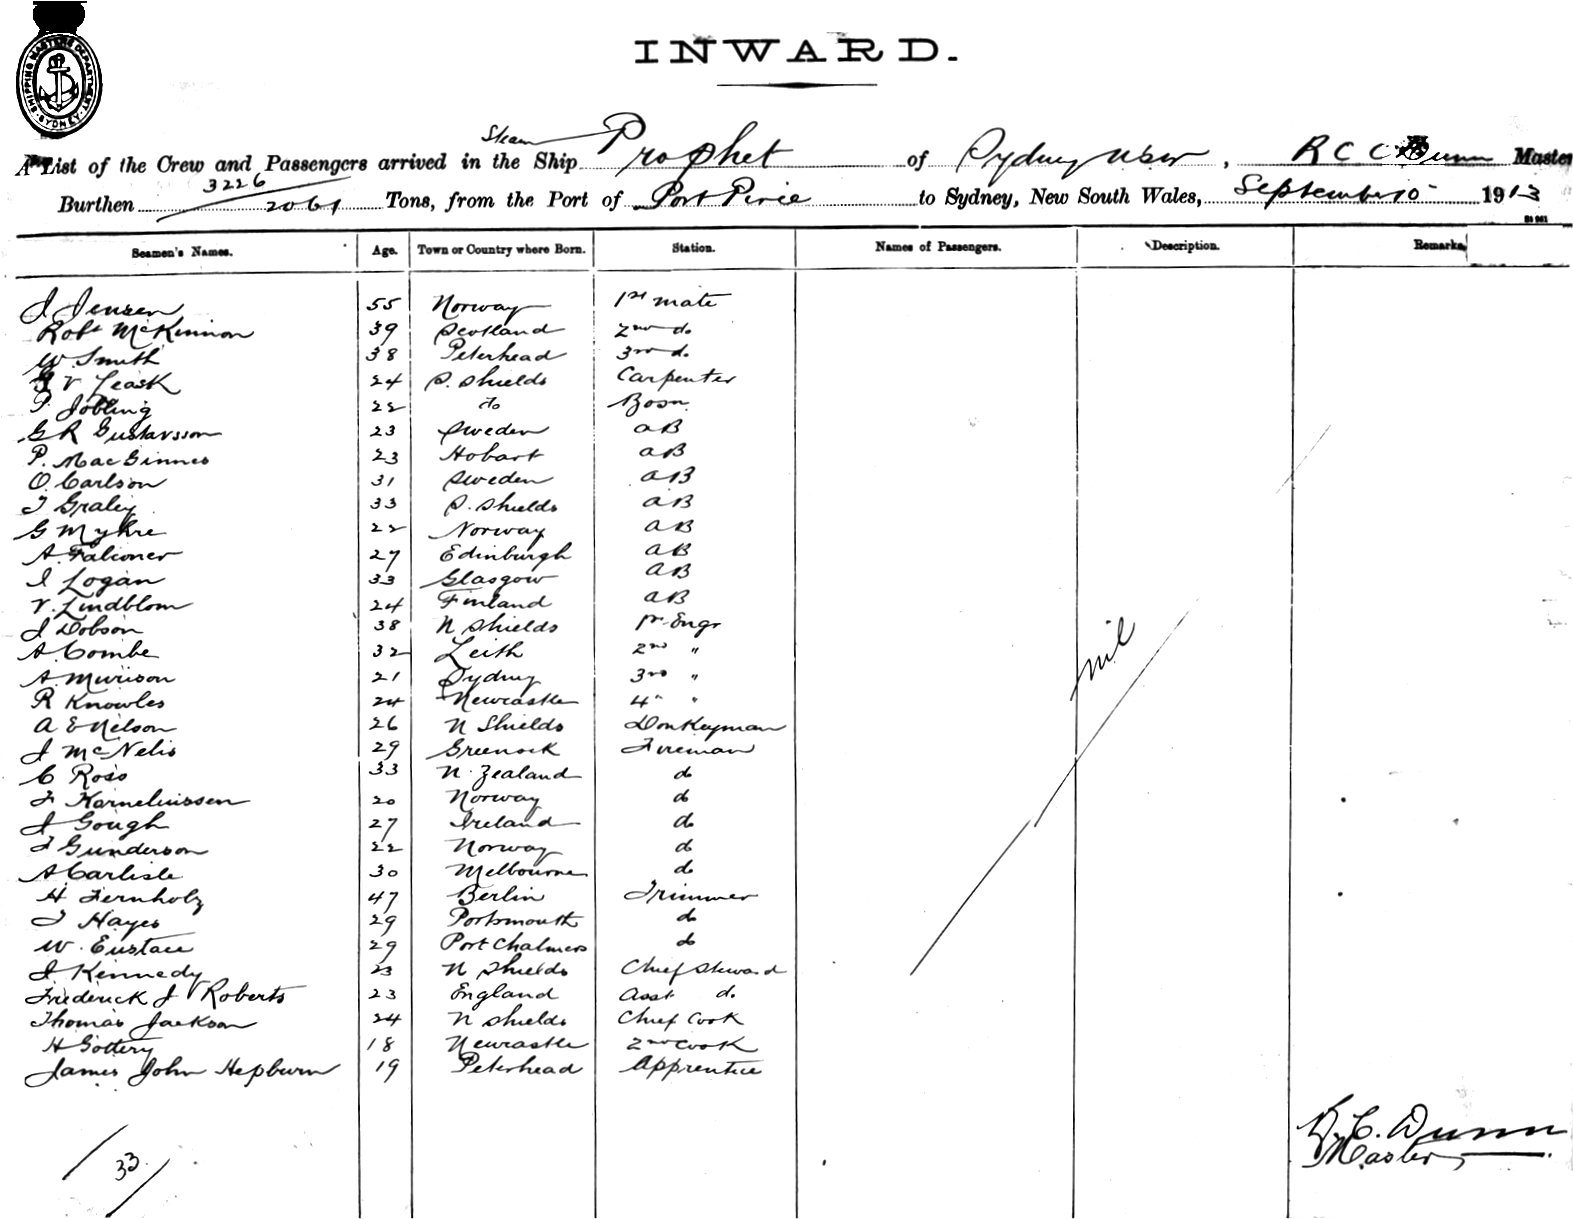 SHIPPING MASTERS DEPARTMENT
SYDNEY
INWARD.
Steam
A List of the Crew and Passengers arrived in the Ship Prophet of Sydney NSW, R C C Dunn Master
3226
Burthen 2061 Tons, from the Port of Port Pirie to Sydney, New South Wales, September 10 1913
Seamen's Names. Age. Town or Country where Born. Station. Names of Passengers. Description. Remarks
J Jensen 55 Norway 1st mate
Robt McKinnon 39 Scotland 2nd do
W Smith 38 Peterhead 3rd do
V Leask 24 S. Shields Carpenter
Jobling 22 do Bosn
G R Gustavsson 23 Sweden AB
P. MacGinnes 23 Hobart AB
O. Carlson 31 Sweden AB
T Graley 33 S. Shields AB
G Myhre 22 Norway AB
A. Falioner 27 Edinburgh AB
J Logan 33 Glasgow AB
V. Lindblom 24 Finland AB
J Dobson 38 N Shields 1st Engr
A. Combe 32 Leith 2nd "
A. Murison 21 Sydney 3rd "
R Knowles 24 Newcastle 4th "
A E Nelson 26 N Shields Donkeyman
J McNelis 29 Greenock Fireman
C Ross 33 N. Zealand do
F Karneliussen 20 Norway do
J Gough 27 Ireland do
T Gunderson 22 Norway do
A Carlisle 30 Melbourne do
H Fernholz 47 Berlin Trimmer
T Hayes 29 Portsmouth do
W. Eustace 29 Port Chalmers do
J Kennedy 23 N Shields Chief Steward
Frederick J Roberts 23 England Asst do
Thomas Jackson 24 N Shields Chief Cook
H Gottery 18 Newcastle 2nd Cook
James John Hepburn 19 Peterhead Apprentice
nil
33
C. Dunn
Master